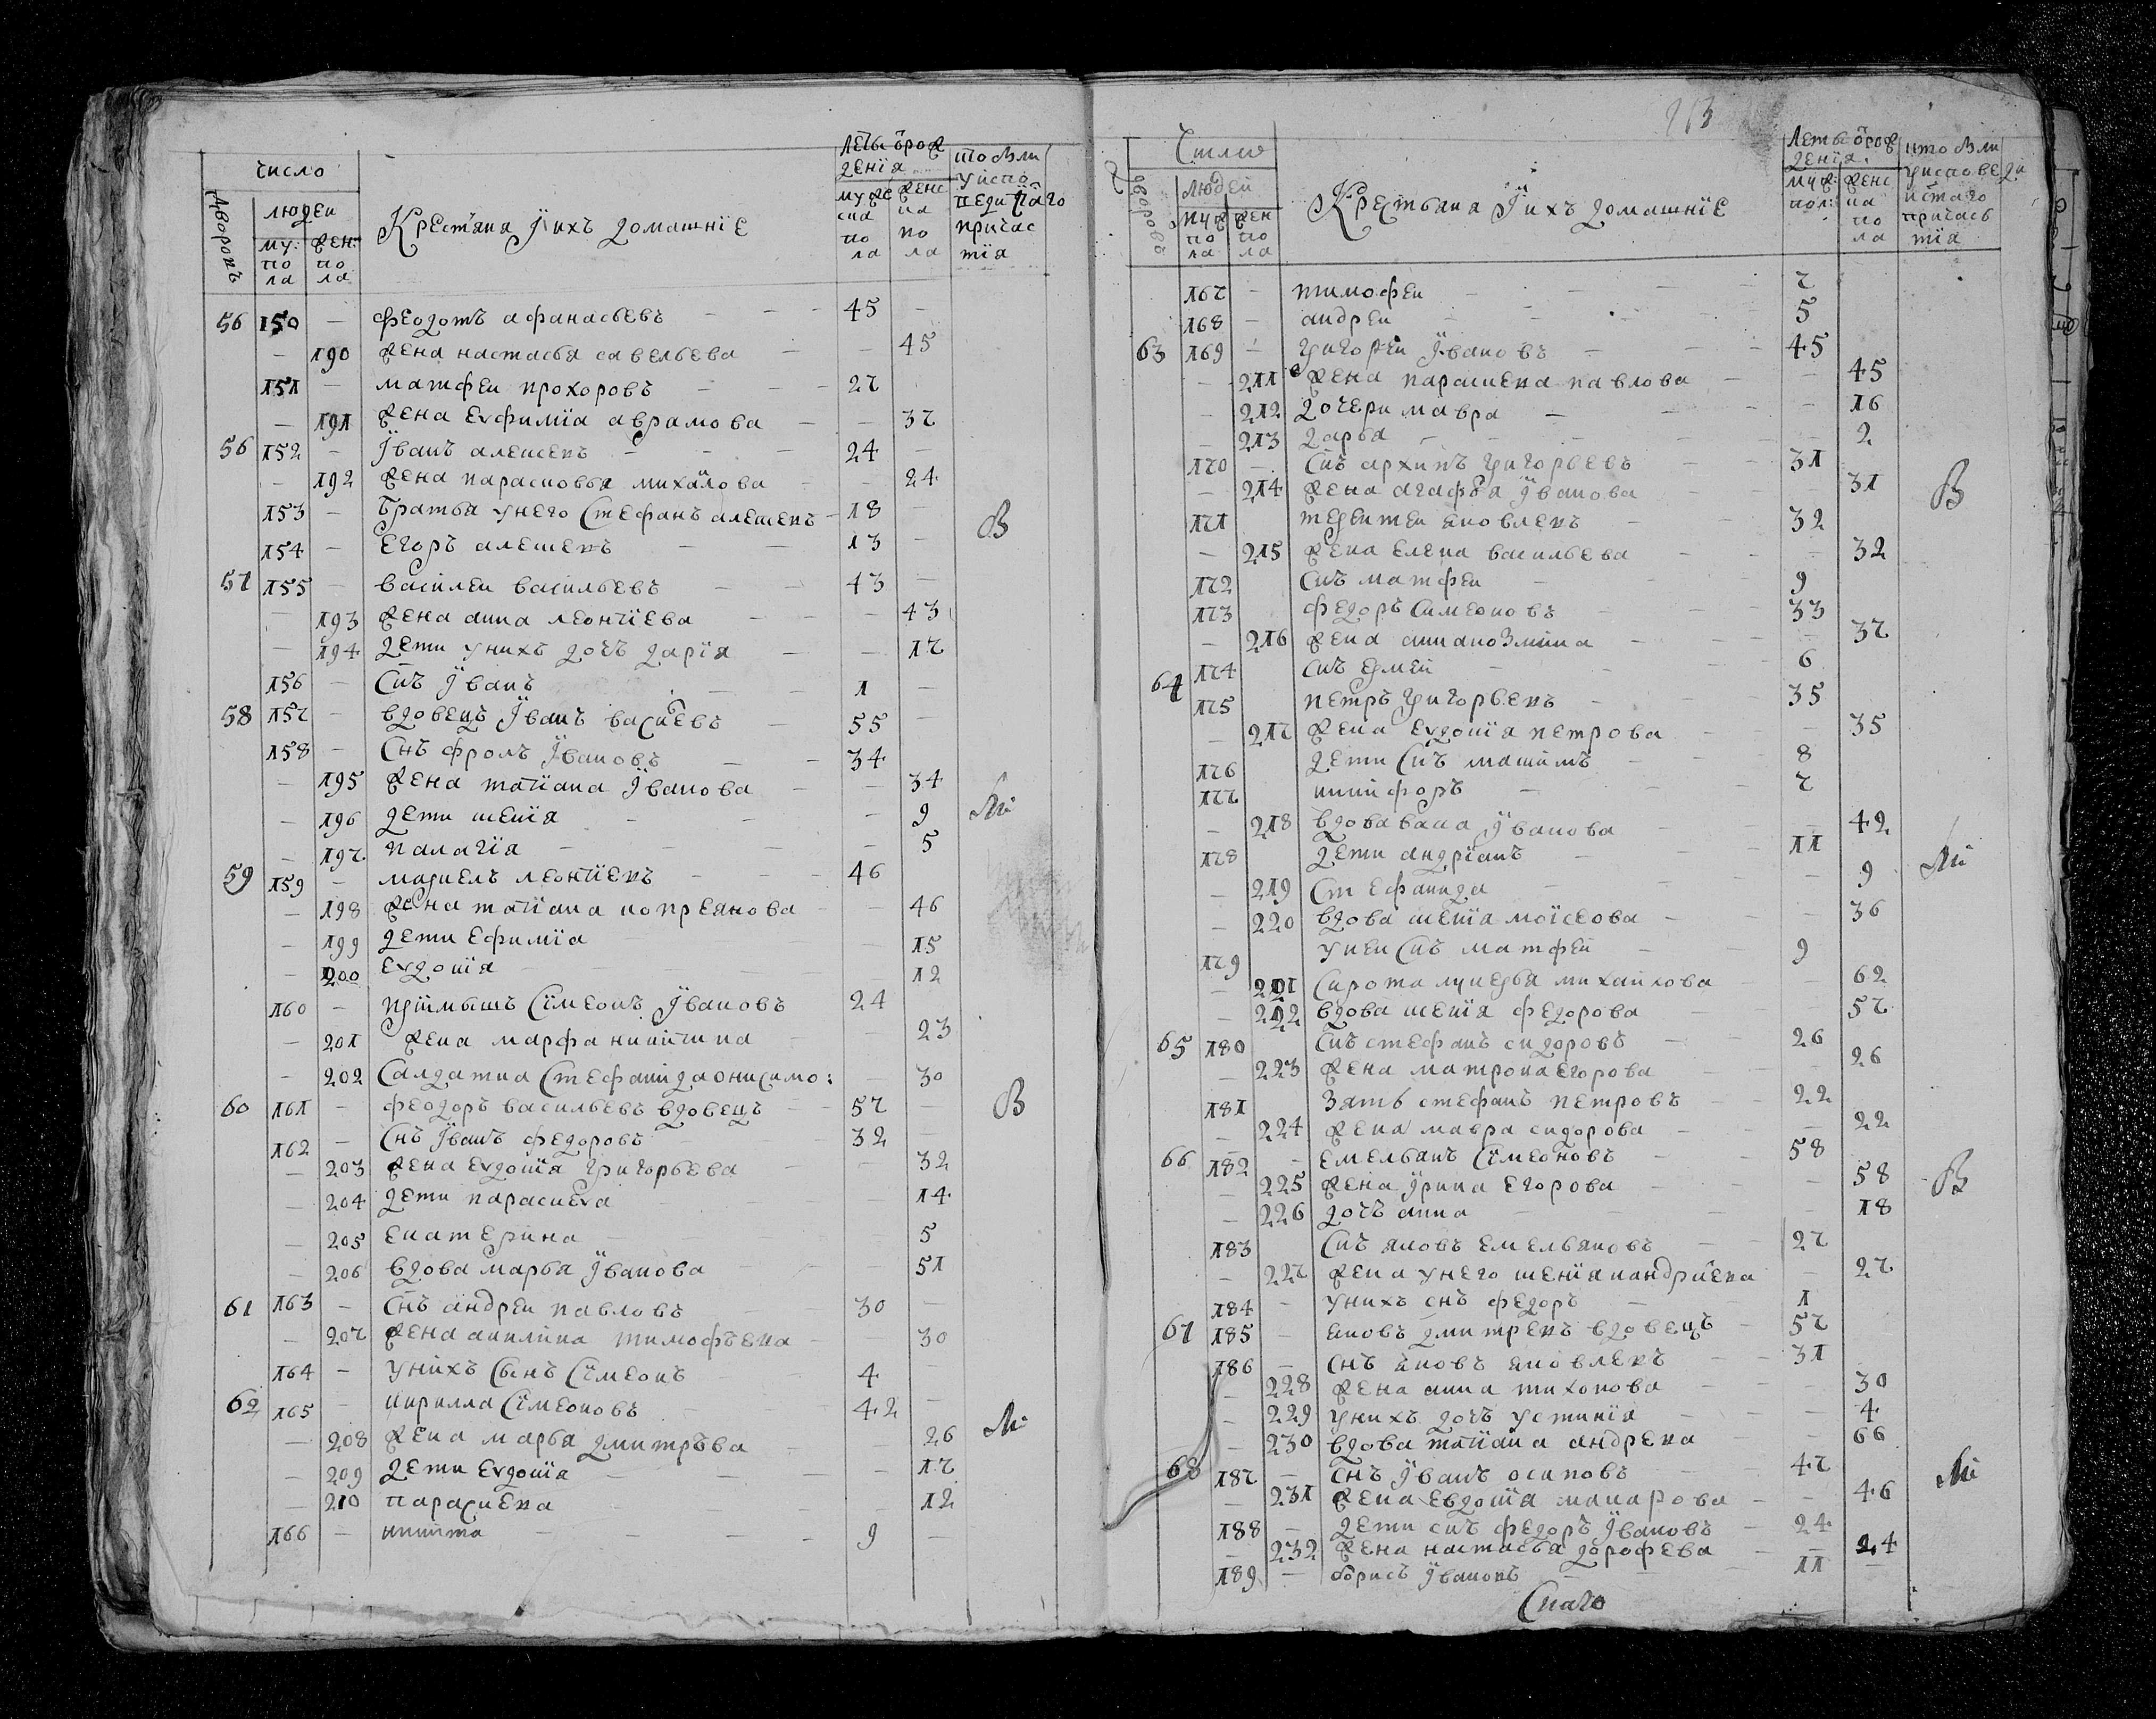 число
дворовъ
людеи
му: пола
жен: пола
Крестяна Їихъ домашнїе
леты ѿрождения
мужеска пола
женска пола
кто были у исповеди С̃таго причастїя
56 150 – феодотъ афанасьевъ 45
190 жена настасья савельева 45
151 – матфеи прохоровъ 27
191 жена Еѵфимїа аврамова 37
56 152 – Їванъ алеѯеевъ 24
192 жена парасковья михаилова 24
153 – братья унего Стефанъ алеѯеевъ 18
154 – Егоръ алеѯеевъ 13
В
57 155 – василеи васильевъ 43
193 жена анна леонтїева 43
194 дети унихъ дочь дарїя 17
156 – Сн̃ъ Їванъ 1
58 157 – вдовецъ Їванъ васильевъ 55
158 – Сн̃ъ фролъ Ївановъ 34
195 жена татїана Їванова 34
196 дети ѯенїя 9
197 палагїя 5
59 159 – маркелъ леонтїевъ 46
198 жена татїана купреянова 46
199 дети Ефимїа 15
200 Еѵдокїя 12
160 – прїимышъ Сїмеонъ Ївановъ 24
201 жена марфа никитина 23
202 Салдатка Стефанида онисимо: 30
60 161 – феодоръ васильевъ вдовецъ 57
В
162 – Сн̃ъ Їванъ федоровъ 32
203 жена Еѵдокїя григорьева 32
204 дети парасцева 14
205 Екатерина 5
206 вдова марья Їванова 51
61 163 – Сн̃ъ андреи павловъ 30
207 жена акилина тимофѣева 30
164 – унихъ Сынъ Сїмеонъ 4
62 165 – кирилла Сїмеоновъ 42
208 жена марья дмитрѣва 26
209 дети Еѵдокїя 17
210 парасцева 12
166 – никита 9
213
Число
дворовъ
людеи
муж пола
жен пола
Крестьяна Їихъ домашнїе
леты ѿрождения
муж: пол:
женска пола
кто были уисповеди истаго причастїя
167 – тимофеи 7
168 – андреи 5
63 169 – григореи Ївановъ 45
211 жена парасцева павлова 45
212 дочери мавра 16
213 дарья 2
170 – Сн̃ъ архипъ григорьевъ 31
214 жена агафья Їванова 31
В
171 терентеи яковлевъ 32
215 жена Елена васильева 32
172 Сн̃ъ матфеи 9
173 федоръ Симеоновъ 33
216 жена анна козмина 37
174 сн̃ъ ермеи 6
64 175 петръ григорьевъ 35
217 жена Еѵдокїя петрова 35
176 дети Сн̃ъ маѯимъ 8
177 никифоръ 7
218 вдова васа Їванова 42
178 дети андрїанъ 11
219 Стефанида 9
220 вдова ѯенїя моїсеова 36
179 у неи Сн̃ъ матфеи 9
221 Сирота лукерья михаилова 62
222 вдова ѯенїя федорова 57
65 180 Сн̃ъ стефанъ сидоровъ 26
223 жена матрона Егорова 26
181 Зять стефанъ петровъ 22
224 жена мавра сидорова 22
66 182 – емельянъ Сїмеоновъ 58
225 жена Їрина Егорова 58
В
226 дочь анна 18
183 Сн̃ъ яковъ емельяновъ 27
227 жена унего ѯенїя кандратева 27
184 – унихъ сн̃ъ федоръ 1
67 185 – яковъ дмитревъ вдовецъ 57
186 – сн̃ъ яковъ яковлевъ 31
228 жена анна тихонова 30
229 унихъ дочь устинїя 4
230 вдова татїана андреева 66
68 187 – сн̃ъ Їванъ осиповъ 47
231 жена Евдокїя макарова 46
188 – дети сн̃ъ федоръ Ївановъ 24
232 жена настасья дорофева 24
189 – борисъ Ївановъ 11